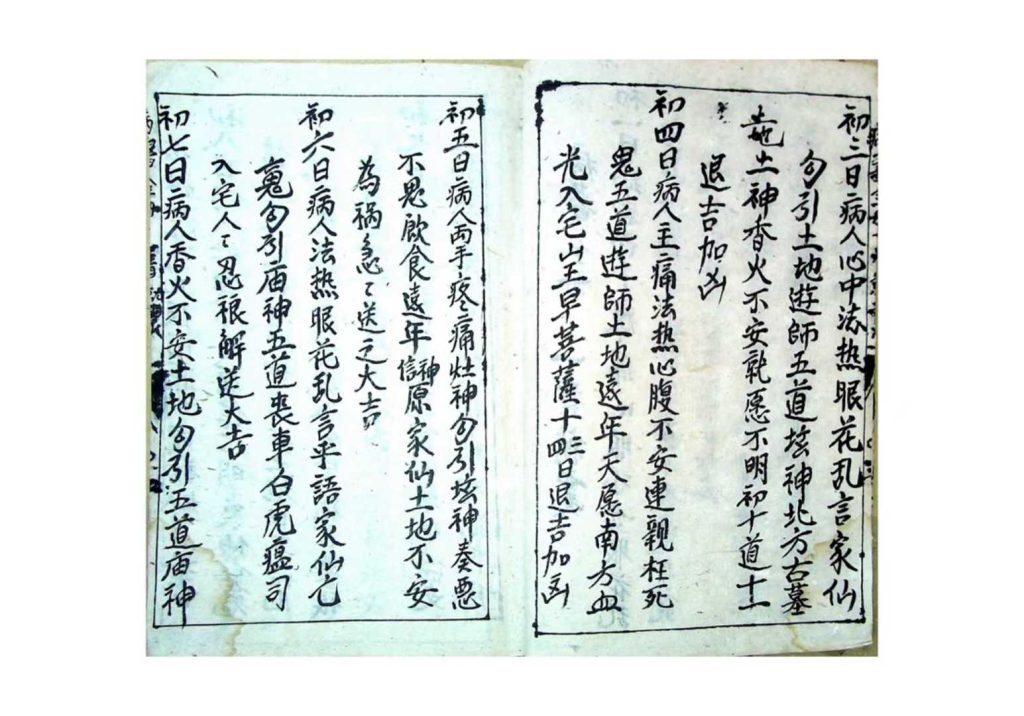 初三日病人心中法热眼花乱言家仙
勾引土地遊師五道坛神北方古墓
土神香火不安許愿不明初十道十一
退吉加凶
初四日病人主痛法熱心腹不安連親枉死
鬼五道遊師土地遠年天愿南方血
光入宅山王早菩薩十三四日退吉加凶
初五日病人両手疼痛灶神勾引坛神奏悪
不思飲食遠年信神原家仙土地不安
為禍急〻送之大吉
初六日病人法热眼花乱言乎語家仙亡
勾引庙神五道喪車白虎瘟司
入宅人〻忍禄解送大吉
初七日病人香火不安土地勾引五道庙神